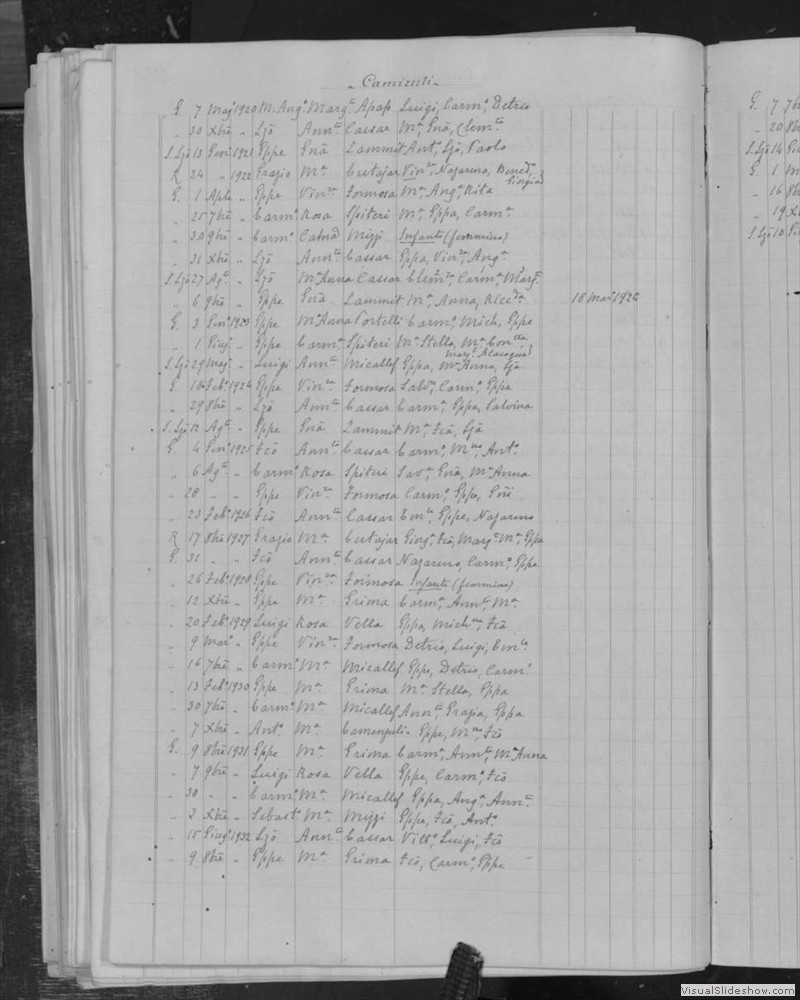 Camizuli
G. 7 Magº 1920 M. Angº Margta Apap Luigi, Carmº, Detrio
„ 30 Xbre „ Ljō Anntа Cassar Mª Gnā, Clemta
S. Ljō 13 Genº 1921 Gppe Gnā Zammit Antº, Ljō, Paolo
R 24 „ 1922 Grazio Mª Cutajar Vinza, Nazareno, Benedª, Giorgia
G. 1 Aple „ Gppe Vinza Formosa Mª, Angª, Rita
„ 25 7bre „ Carmº Rosa Spiteri Mª, Gppa, Carmª
„ 30 9bre „ Carmº Catnā Mizzi Infante (femmina)
„ 31 Xbre „ Ljō Annta Cassar Gppa, Vinza, Angª
S. Ljō 27 Agto „ Ljō Mª Anna Cassar Clemza, Carmª, Margta
„ 6 9bre „ Gppe Gnā Zammit Mª, Anna, Riccda 18 Marº 1926
G. 3 Genº 1923 Gppe Mª Anna Portelli Carmº, Mich, Gppe
„ 1 Giugº „ Gppe Carmª Spiteri Mª Stella, Mª Conctta
Margª Alacoque
S. Ljō 29 Magº „ Luigi Annta Micallef Gppa, Mª Anna, Ljā
G. 10 Febº 1924 Gppe Vinza Formosa Salvº, Carmº, Gppe
„ 29 8bre „ Ljō Annta Cassar Carmª, Gppa, Calvina
S. Ljō 12 Agto „ Gppe Gnā Zammit Mª, Fcā, Ljā
G. 4 Genº 1925 Fcō Annta Cassar Carmº, Mno, Antº
„ 6 Agto „ Carmº Rosa Spiteri Savª, Gnā, Mª Anna
„ 28 „ „ Gppe Vinza Formosa Carmº, Gppe, Gñi
„ 23 Febº 1926 Fcō Annta Cassar Emle, Gppe, Nazareno
R 17 8bre 1927 Grazio Mª Cutajar Giugª, Fcā, Margª Mª, Gppa
G. 31 „ „ Fcō Annta Cassar Nazareno, Carmº, Gppe
„ 26 Febº 1928 Gppe Vinza Formosa Infante (femmina)
„ 12 Xbre „ Gppe Mª Grima Carmª, Annta, Mª
„ 20 Febº 1929 Luigi Rosa Vella Gppa, Michna, Fcā
„ 9 Marº „ Gppe Vinza Formosa Detrio, Luigi, Emle
„ 16 7bre „ Carmº Mª Micallef Gppe, Detrio, Carmº
„ 13 Febº 1930 Gppe Mª Grima Mª Stella, Gppa
„ 30 7bre „ Carmº Mª Micallef Annta, Grazia, Gppa
„ 7 Xbre „ Antº Mª Camenzuli Gppe, Mno, Fcō
G. 9 8bre 1931 Gppe Mª Grima Carmª, Annta, Mª Anna
„ 7 9bre „ Luigi Rosa Vella Gppe, Carmº, Fcō
„ 30 „ „ Carmº Mª Micallef Gppa, Angª, Annta
„ 3 Xbre „ Sebast Mª Mizzi Gppe, Fcō, Antº
„ 15 Giugº 1932 Ljō Annta Cassar Vittº, Luigi, Fcō
„ 9 8bre „ Gppe Mª Grima Fcō, Carmº, Gppe
G. 7 7b
„ 20 8b
S. Ljō 14 Gi
G. 1 M
„ 16 8b
„ 19 X
S. Ljō 10 Gi
VisualSlideshow.com